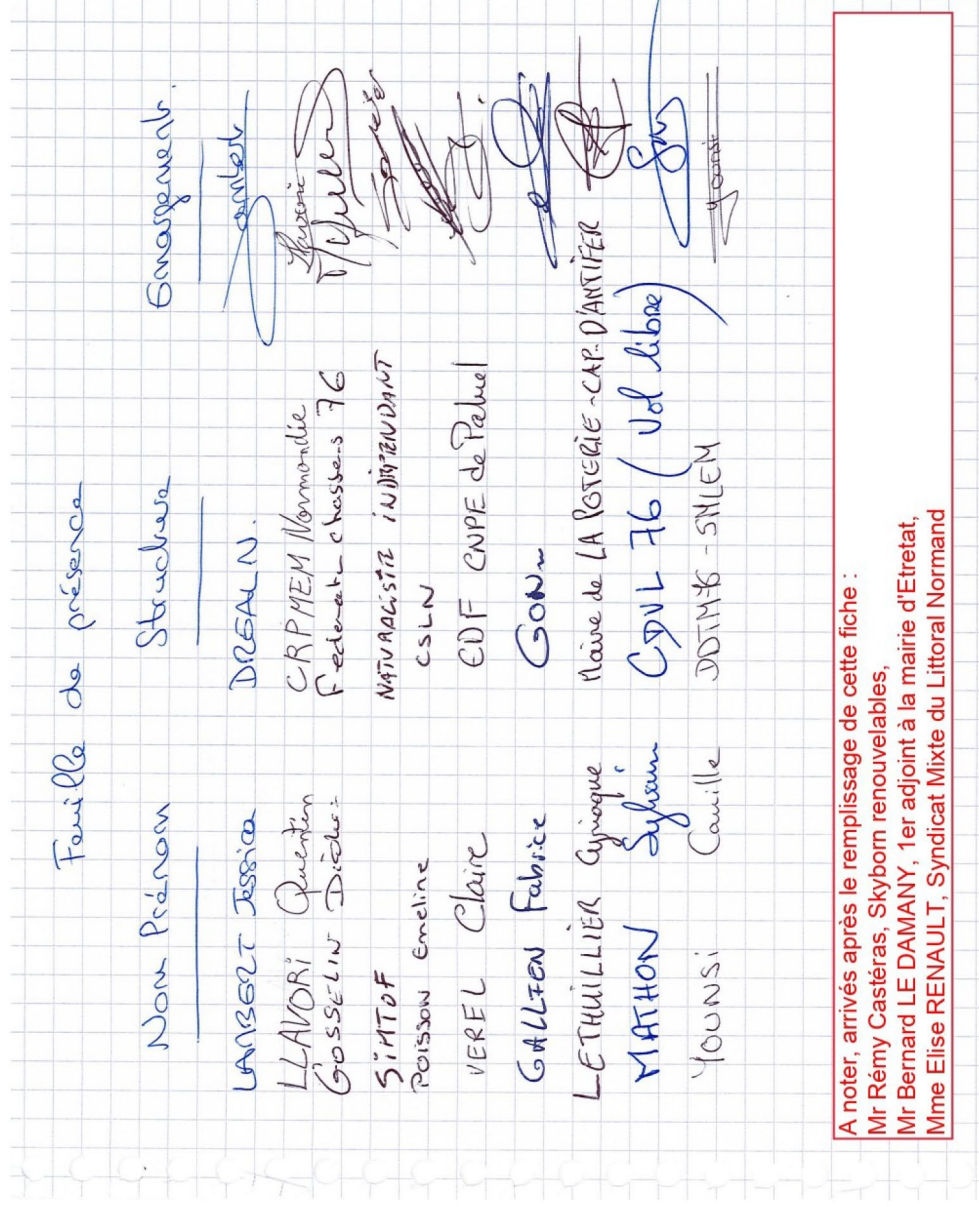 Feuille de présence
Nom Prénom Structure Emargement.
LAMBERT Jessica DREAL N.
LLAVORI Quentin CRPMEM Normandie
GOSSELIN Didier Federation chasseurs 76
SiMTOF NATURALISTE INDEPENDANT
Poisson Emeline CSLN
VEREL Claire EDF CNPE de Paluel
GALLIEN Fabrice GONm
LETHUILLIER Cyriaque Maire de LA POTERIE-CAP-D'ANTIFER
MATHON Sylvain CDVL 76 (Vol libre)
YOUNSI Camille DDTM76 - SMLEM Younsi
A noter, arrivés après le remplissage de cette fiche :
Mr Rémy Castéras, Skyborn renouvelables,
Mr Bernard LE DAMANY, 1er adjoint à la mairie d'Etretat,
Mme Elise RENAULT, Syndicat Mixte du Littoral Normand